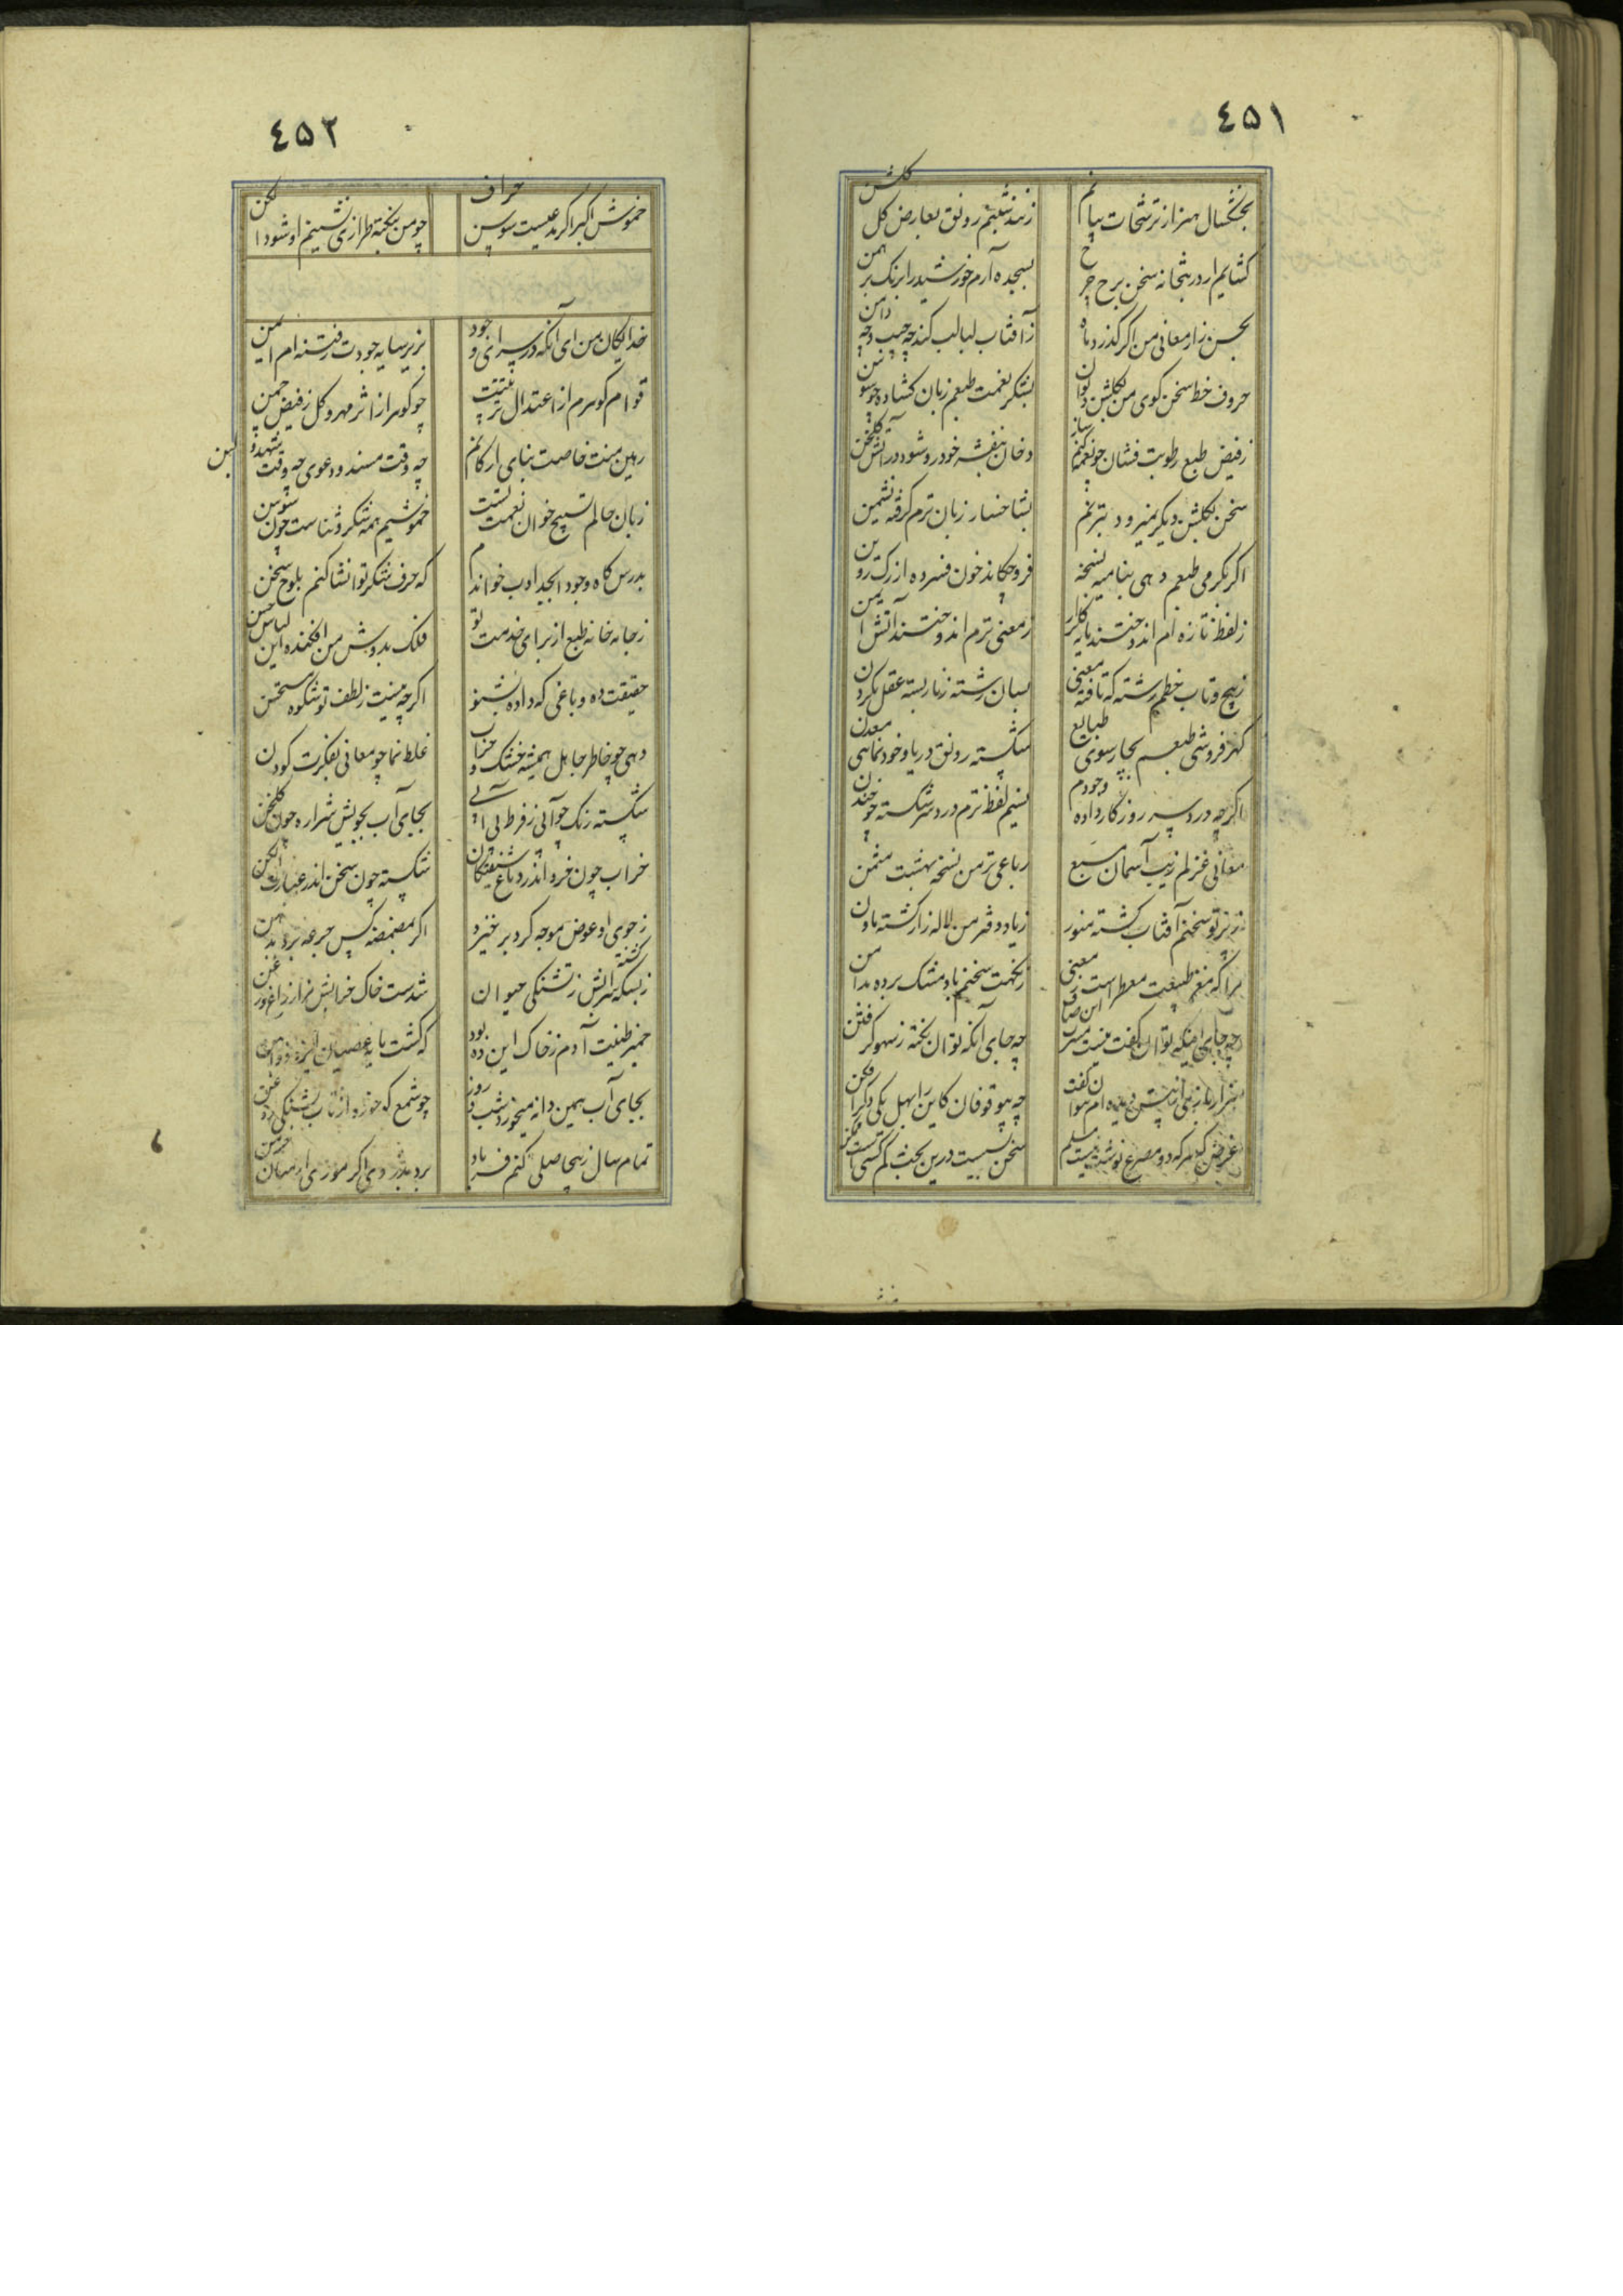 ٤٥١
بخشکسال هنر از ترشحات بیانم
زند شبنم رونق بعارض گل گلشن
گشایم ار در بتخانه سخن برخ چرخ
بسجده آرم خورشید را برنگ برهمن
بحسن زار معانی من اگر گذرد ماه
ز آفتاب لبالب کند چه جیب و چه دامن
حروف خط سخن گوی من بگلشن دیوان
بشکر نعمت طبعم زبان گشاده چو سوسن
ز فیض طبع رطوبت فشان چو نغمه کنم ساز
دخان بنفشه خودرو شود در آتش گلخن
سخن بگلشن دیگر نمیرود بترنم
بشاخسار زبان ترم گرفته نشیمن
اگر بگرمی طبعم دهی بنامیه نسخه
فرو چکاند خون فسرده از رگ روین
ز لفظ تازه ام اندوختند مایه گلزار
ز معنی ترم اندوختند آتش ایمن
ز پیچ و تاب خطم رشته که تافته معنی
بسان رشته زنار بسته عقل بگردن
گهر فروشی طبعم بچار سوی طبایع
شکسته رونق دریا و خودنمایی معدن
اگر چه درد سر روزگار داده وجودم
نسیم لفظ ترم درد سر شکسته چو چندن
معانی غزلم زیب آسمان مسبع
رباعی تر من نسخه بهشت مثمن
ز پرتو سخنم آفتاب گشته منور
ز یاد دفتر من لاله زار گشته
مرا که مغز طبیعت معطر است ز معنی
ز نکهت سخنم باد مشک برده بدامن
چه جای اینکه توان گفت نیست
چه جای آنکه توان نکته ز سهو گرفتن
هزار
چه بیوقوفان کاین را بهل یکی دگر افکن
غرض که هر که دو مصرع نوشت نیست مسلم
سخن بسیست درین بحث کم کسی است
٤٥٢
خموش اکبر اگر مدعیست سوسن حراف
چو من بنکته طرازی نشینم او شود الکن
خدایگان من ای آنکه در سرای وجود
بزیر سایه جودت ز فتنه ام ایمن
قوام گوهرم از اعتدال تربیتت
چو گوهر از اثر مهر و گل ز فیض چمن
رهین منت خاصت بنای ارکانم
چه وقت مسند و دعوی چه وقت مهد و لبن
زبان حالم تسبیح خوان نعمت تست
خموشیم همه شکر و ثناست چون سوسن
بدرس گاه وجود ابجد ادب خواندم
که حرف شکر تو انشا کنم بلوح سخن
ز جامه خانه طبع از برای خدمت تو
فلک بدوش من افکنده این لباس حسن
حقیقت ده و باغی که داده بشنو
اگر چه نیست ز لطف تو شکوه مستحسن
دهی چو خاطر جاهل همیشه خشک و خراب
غلط نما چو معانی بفکرت کودن
شکسته رنگ چو آبی ز فرط بی آبی
بجای آب بجویش شراره چون گلخن
خراب چون خرد اندر دماغ شیفتگان
شکسته چون سخن اندر عبارت الکن
ز جوی او عوض موجه گرد برخیزد
اگر بمضمضه کس جرعه برد بدهن
ز بسکه بر سر آبش ز تشنگی حیوان
شدست خاک خرابش
خمیر طینت آدم ز خاک این ده بود
که گشت مایه عصیان
بجای آب همین دانه میخورد شب و روز
چو شمع که خورد از تاب تشنگی روغن
تمام سال ز بیحاصلی کنم فریاد
برد بدزدی اگر موری از میان خرمن